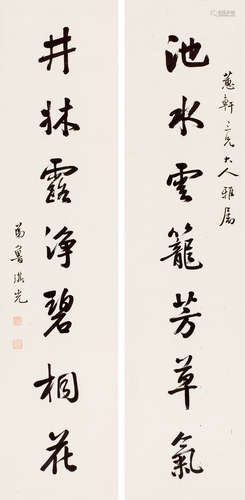 蕙軒三兄大人雅屬
池水雲籠芳草氣
井牀露淨碧桐花
弟魯琪光